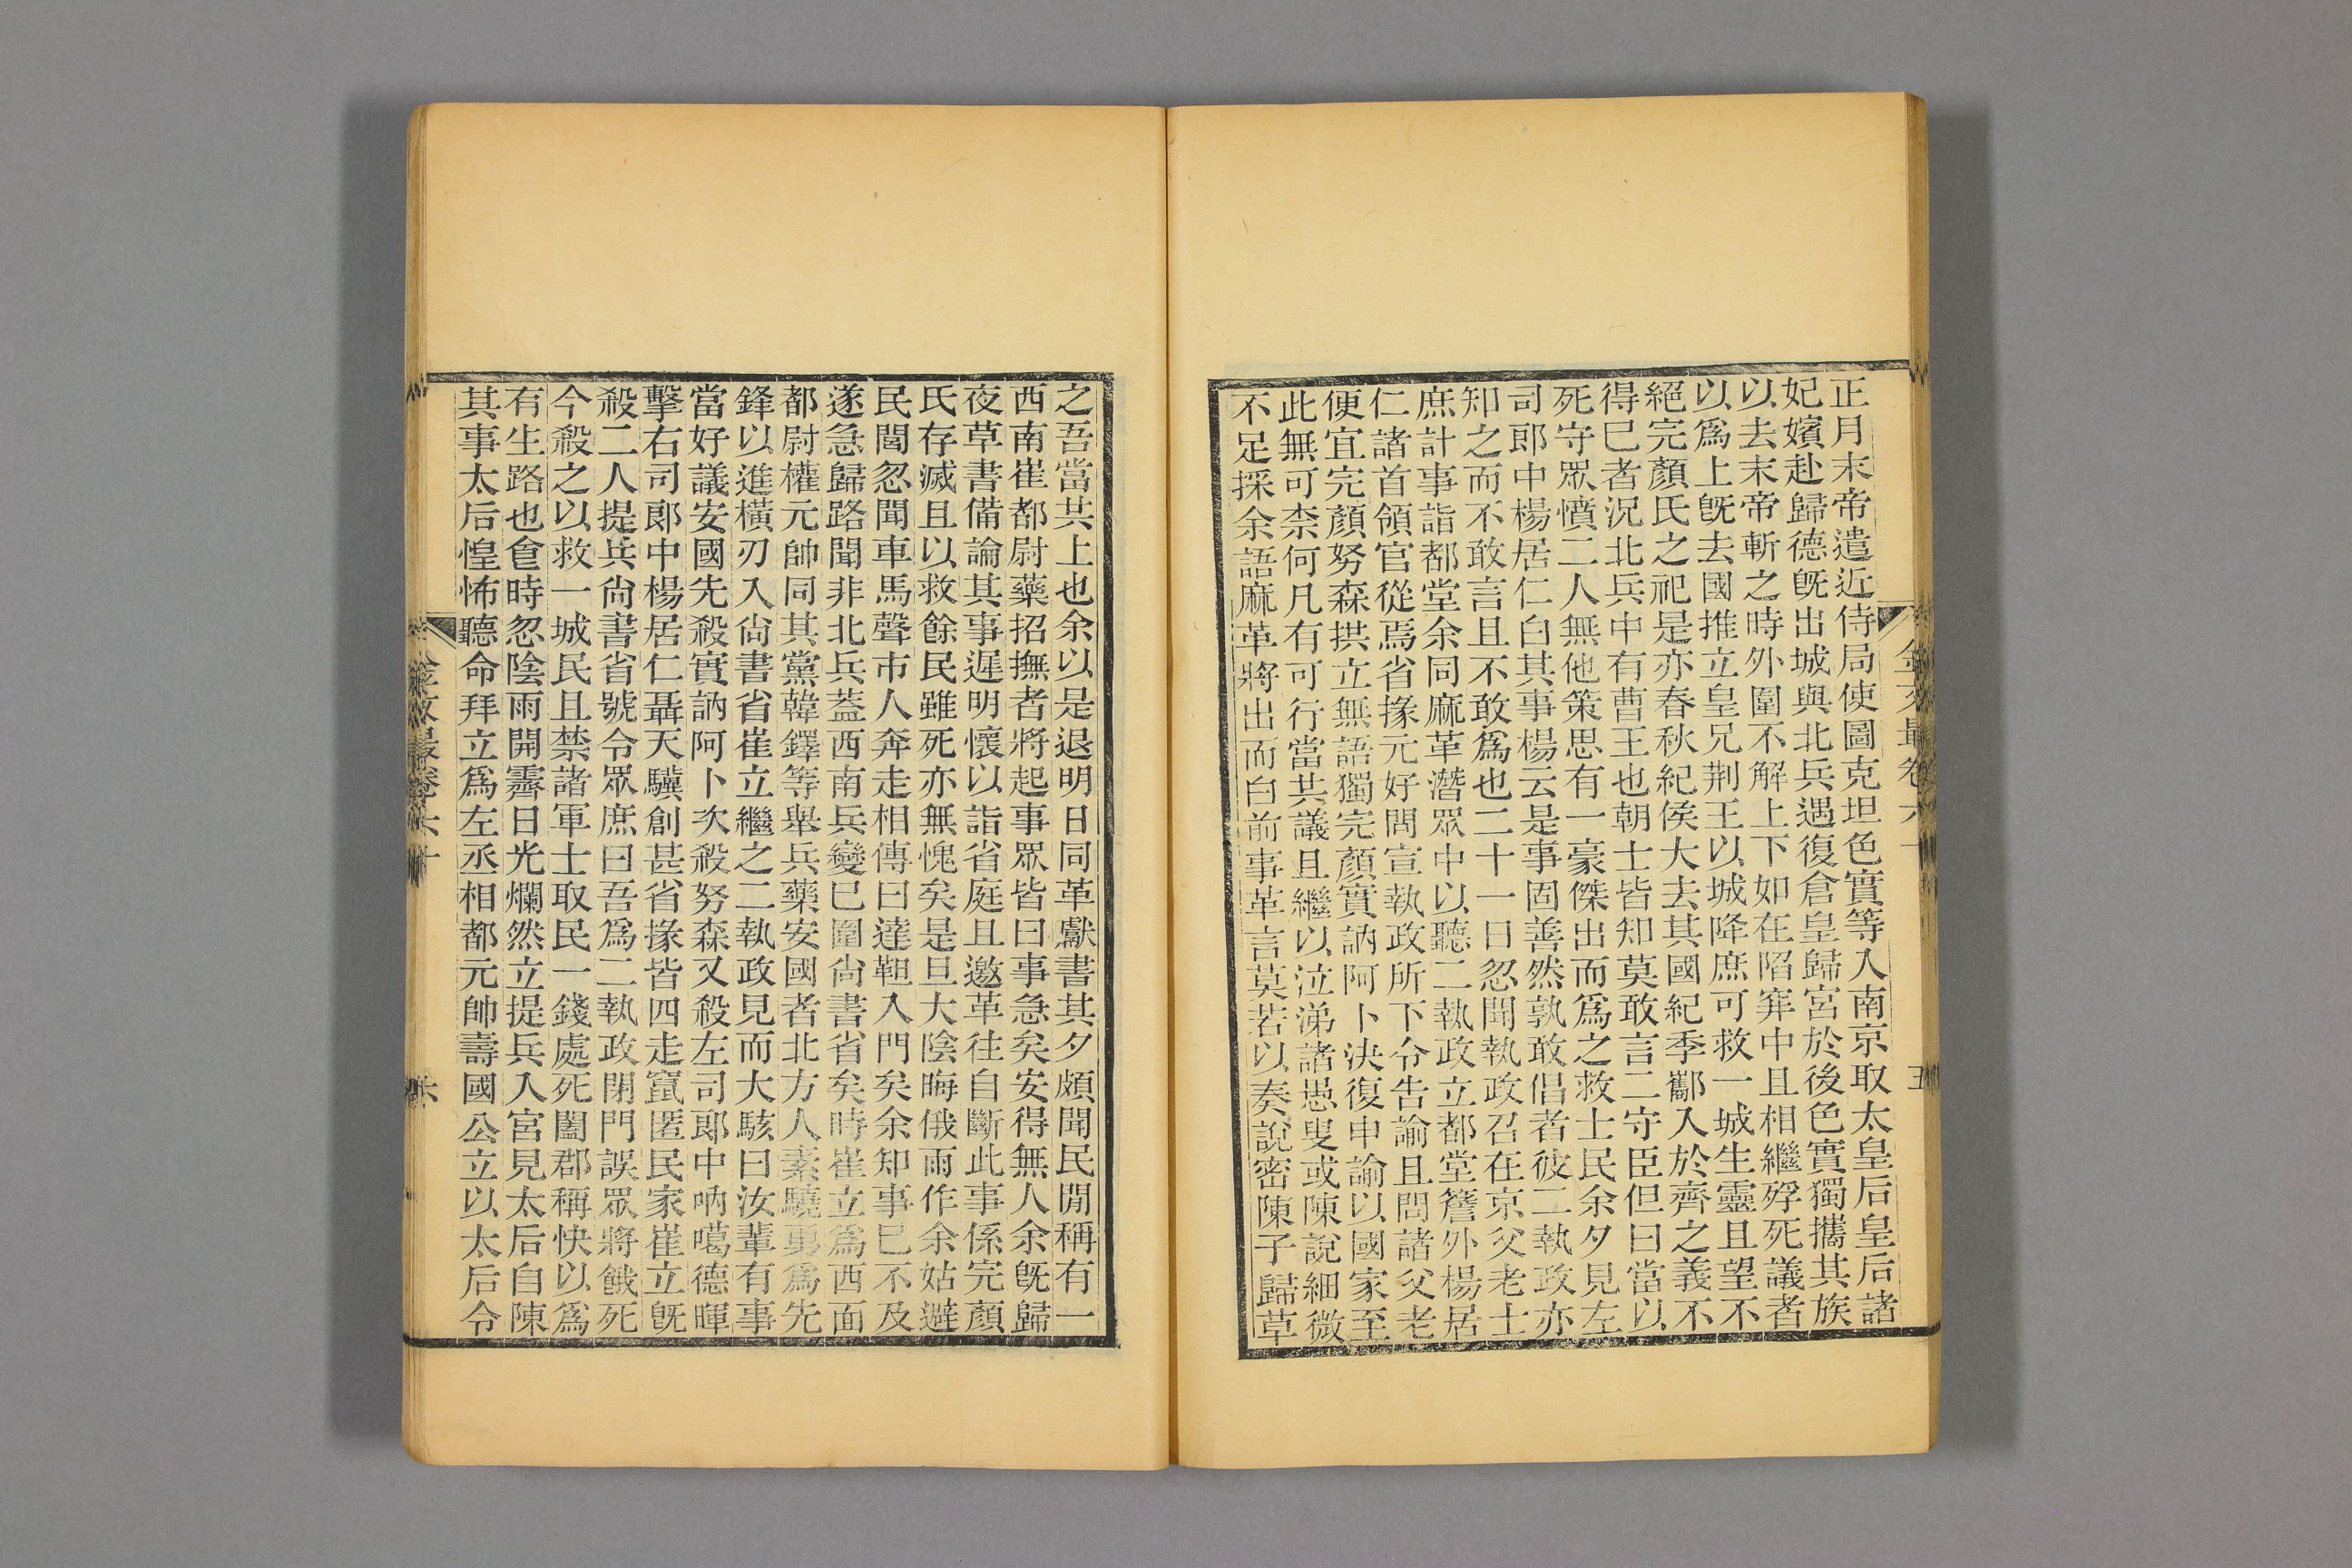 正月末帝遣近侍局使圖克坦色實等入南京取太皇后皇后諸
妃嬪赴歸德既出城與北兵遇復倉皇歸宮於後色實獨攜其族
以去末帝斬之時外圍不解上下如在陷穽中且相繼殍死議者
以爲上既去國推立皇兄荆王以城降庶可救一城生靈且望不
絕完顏氏之祀是亦春秋紀侯大去其國紀季酅入於齊之義不
得已者況北兵中有曹王也朝士皆知莫敢言二守臣但曰當以
死守眾憤二人無他策思有一豪傑出而爲之救士民余夕見左
司郎中楊居仁白其事楊云是事固善然孰敢倡者彼二執政亦
知之而不敢言且不敢爲也二十一日忽聞執政召在京父老士
庶計事詣都堂余同麻革潛眾中以聽二執政立都堂簷外楊居
仁諸首領官從焉省掾元好問宣執政所下令告諭且問諸父老
便宜完顏努森拱立無語獨完顏實訥阿卜決復申諭以國家至
此無可柰何凡有可行當共議且繼以泣涕諸愚叟或陳說細微
不足採余語麻革將出而白前事革言莫若以奏說密陳子歸草
之吾當共上也余以是退明日同革獻書其夕頗聞民閒稱有一
西南崔都尉藥招撫者將起事眾皆曰事急矣安得無人余既歸
夜草書備論其事遲明懷以詣省庭且邀革往自斷此事係完顏
氏存滅且以救餘民雖死亦無愧矣是旦大陰晦俄雨作余姑避
民閭忽聞車馬聲市人奔走相傳曰達靼入門矣余知事已不及
遂急歸路聞非北兵蓋西南兵變已圍尙書省矣時崔立爲西面
都尉權元帥同其黨韓鐸等舉兵藥安國者北方人素驍勇爲先
鋒以進橫刃入尙書省崔立繼之二執政見而大駭曰汝輩有事
當好議安國先殺實訥阿卜次殺努森又殺左司郎中吶噶德暉
擊右司郎中楊居仁聶天驥創甚省掾皆四走竄匿民家崔立既
殺二人提兵尙書省號令眾庶曰吾爲二執政閉門誤眾將餓死
今殺之以救一城民且禁諸軍士取民一錢處死闔郡稱快以爲
有生路也倉時忽陰雨開霽日光爛然立提兵入宮見太后自陳
其事太后惶怖聽命拜立爲左丞相都元帥壽國公立以太后令